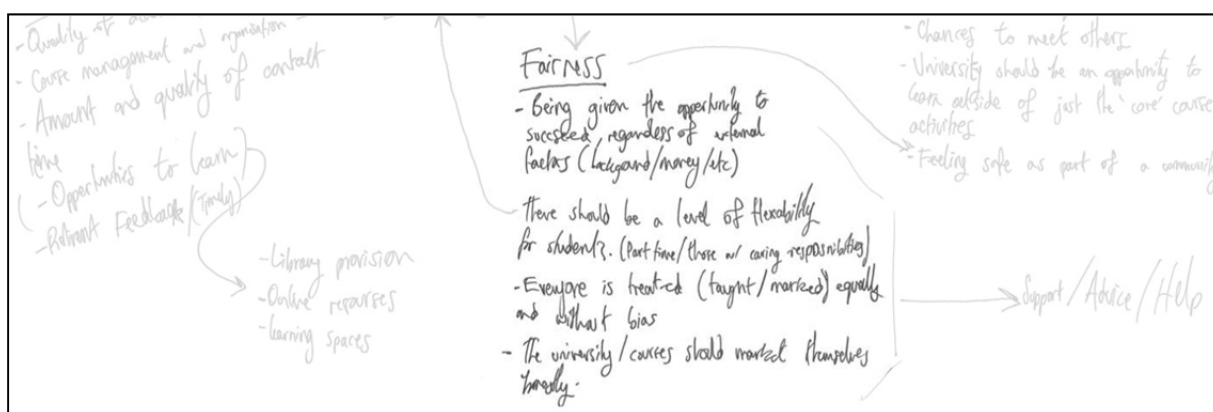 - Quality of
- Course management and organisation
- Amount and quality of contact
time
(- Opportunities to learn)
- Feedback/(Timely)
- Library provision
- Online resourses
- Learning spaces
Fairness
- Being given the opportunity to
succseed, regardless of external
factors (background/money/etc)
- there should be a level of flexability
for students. (Part time/those w/ caring responsibilities)
- Everyone is treated (taught/marked) equally
and without bias
- The university/courses should market themselves
honestly.
- Chances to meet others
- University should be an opportunity to
learn outside of just the 'core' course
activities
- Feeling safe as part of a community
Support/Advice/Help